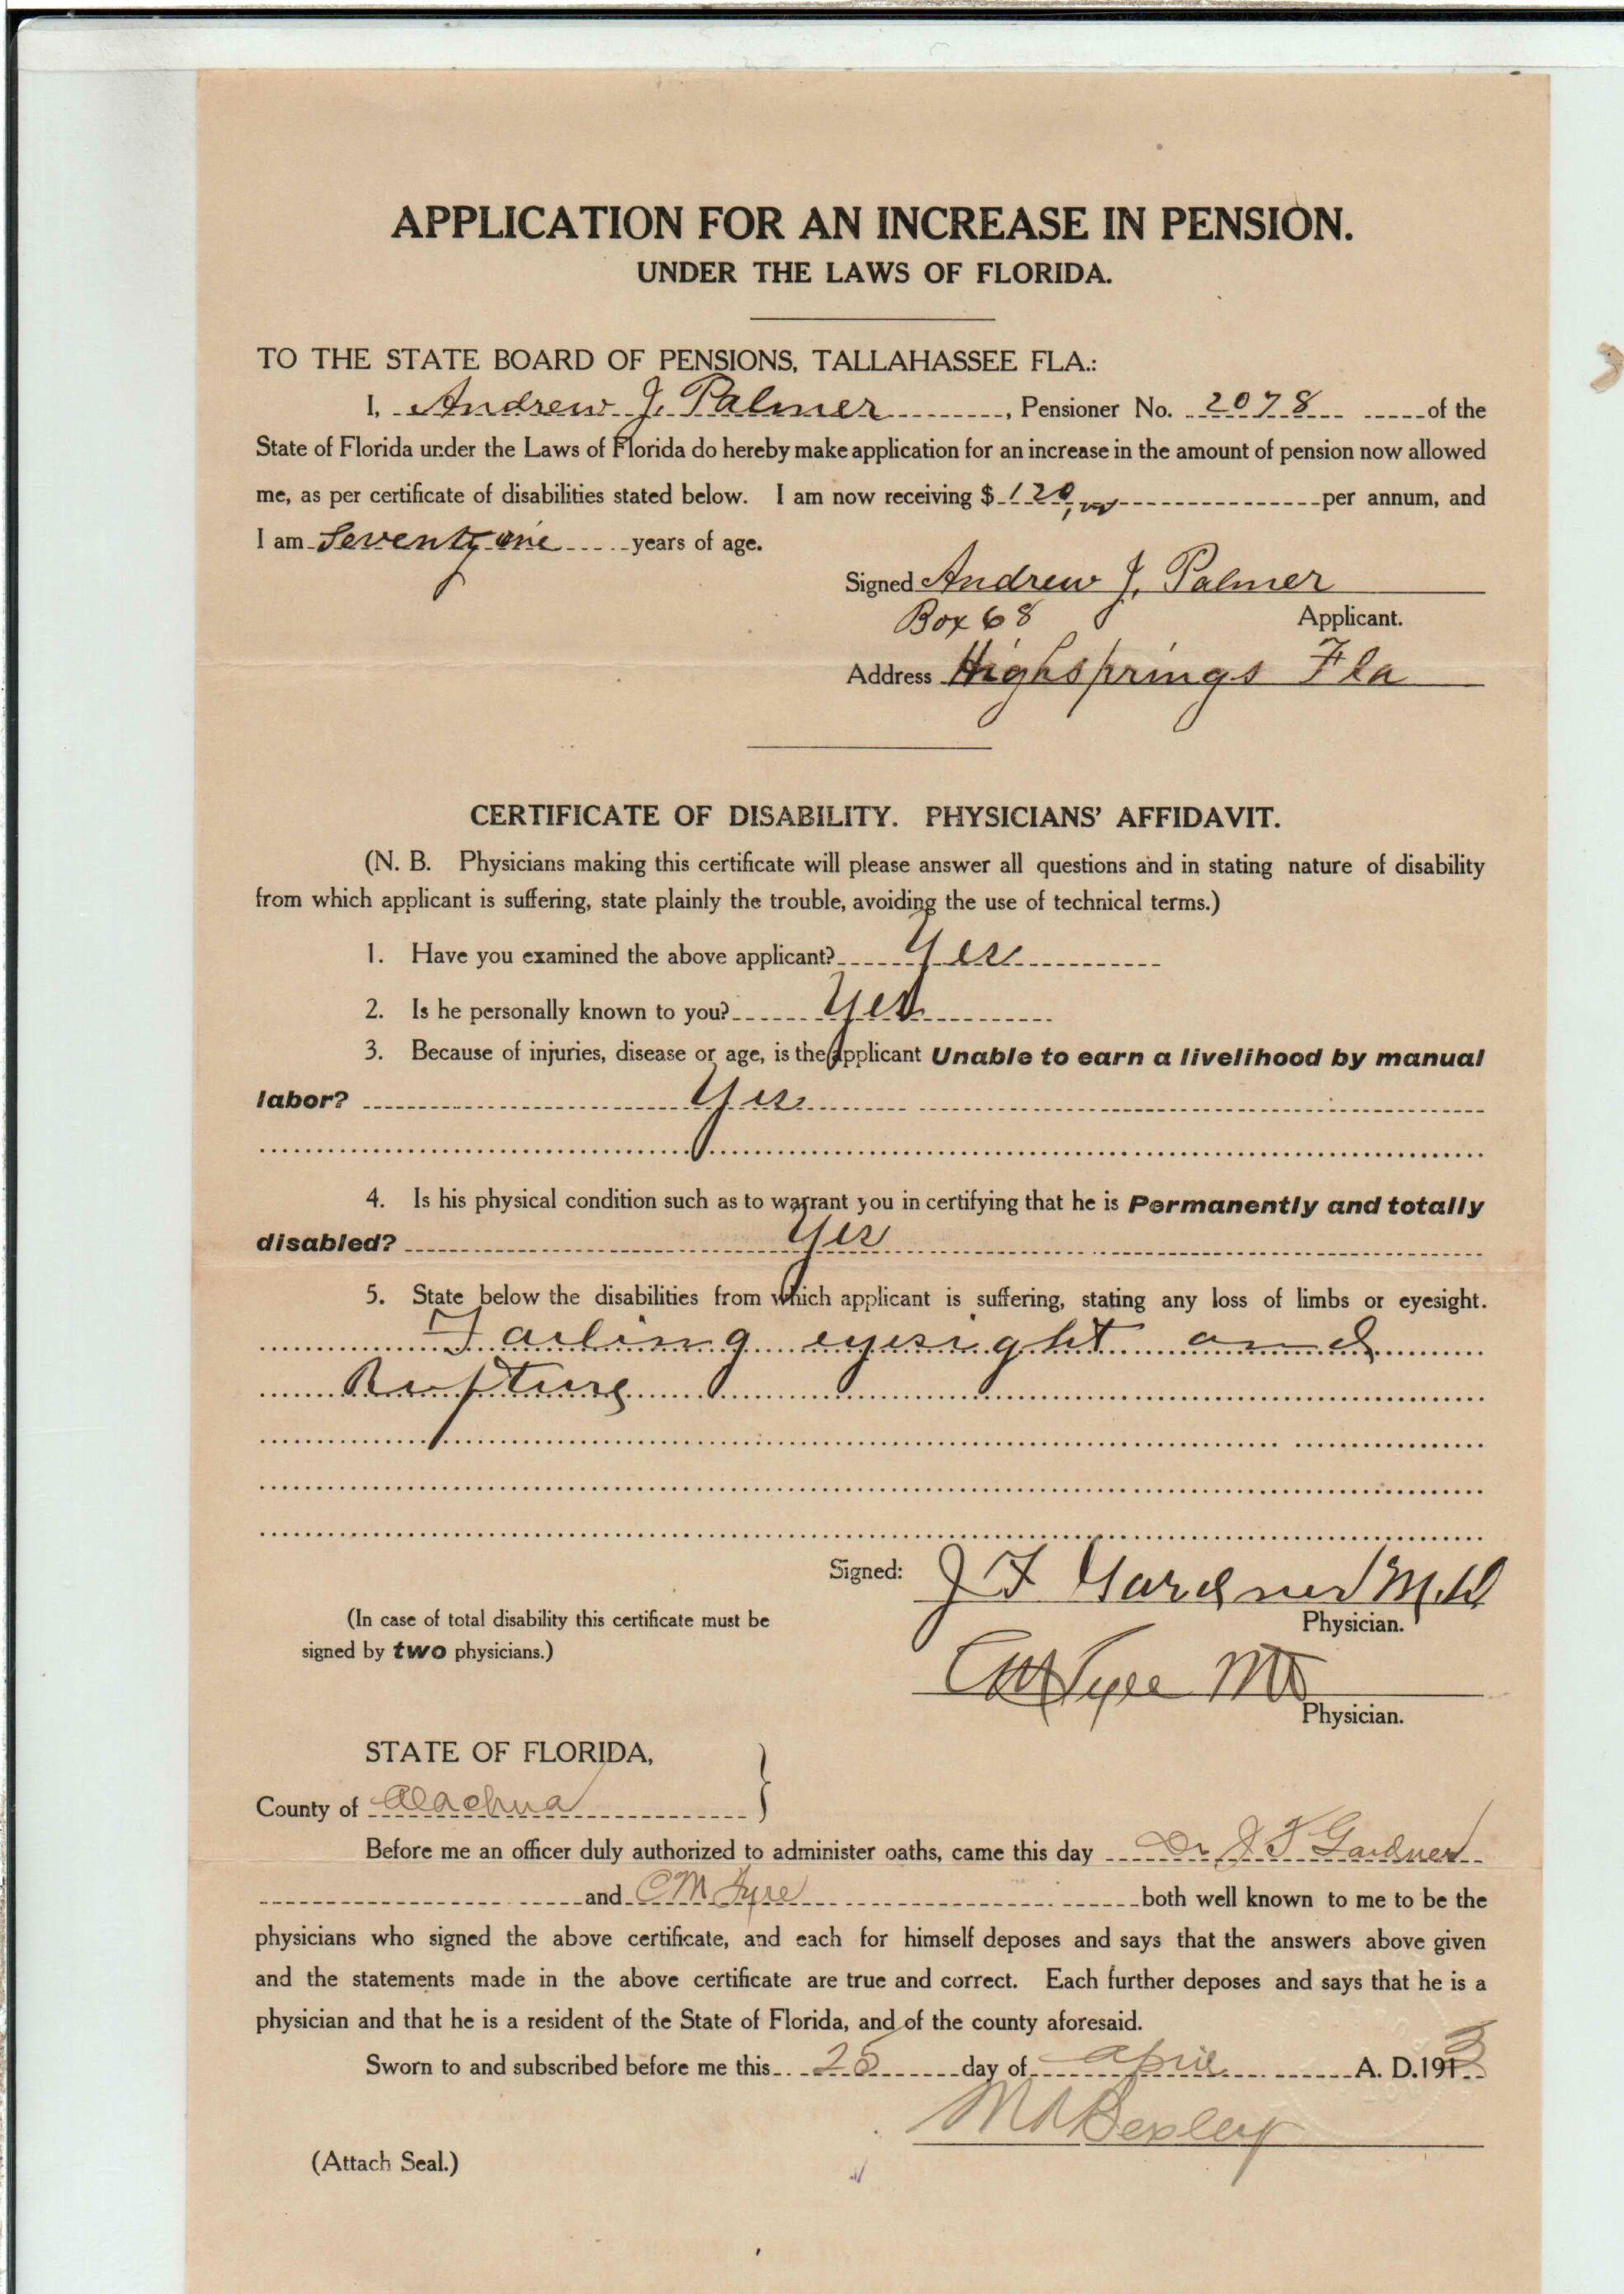 APPLICATION FOR AN INCREASE IN PENSION.
UNDER THE LAWS OF FLORIDA.
TO THE STATE BOARD OF PENSIONS, TALLAHASSEE FLA.:
I, Andrew J. Palmer, Pensioner No. 2078 of the
State of Florida under the Laws of Florida do hereby make application for an increase in the amount of pension now allowed
me, as per certificate of disabilities stated below. I am now receiving $ 120 per annum, and
I am Seventy one years of age.
Signed Andrew J. Palmer
Box 68 Applicant.
Address Highsprings Fla
CERTIFICATE OF DISABILITY. PHYSICIANS' AFFIDAVIT.
(N. B. Physicians making this certificate will please answer all questions and in stating nature of disability
from which applicant is suffering, state plainly the trouble, avoiding the use of technical terms.)
1. Have you examined the above applicant? Yes
2. Is he personally known to you? Yes
3. Because of injuries, disease or age, is the applicant Unable to earn a livelihood by manual
labor? Yes
4. Is his physical condition such as to warrant you in certifying that he is Permanently and totally
disabled? Yes
5. State below the disabilities from which applicant is suffering, stating any loss of limbs or eyesight.
Failing eyesight and
Rupture
Signed: J F Gardner M.D
Physician.
(In case of total disability this certificate must be
signed by two physicians.)
CM Tyre MD
Physician.
STATE OF FLORIDA,
County of Alachua }
Before me an officer duly authorized to administer oaths, came this day Dr J F Gardner
and C M Tyre both well known to me to be the
physicians who signed the above certificate, and each for himself deposes and says that the answers above given
and the statements made in the above certificate are true and correct. Each further deposes and says that he is a
physician and that he is a resident of the State of Florida, and of the county aforesaid.
Sworn to and subscribed before me this 25 day of April A. D. 1913
(Attach Seal.)